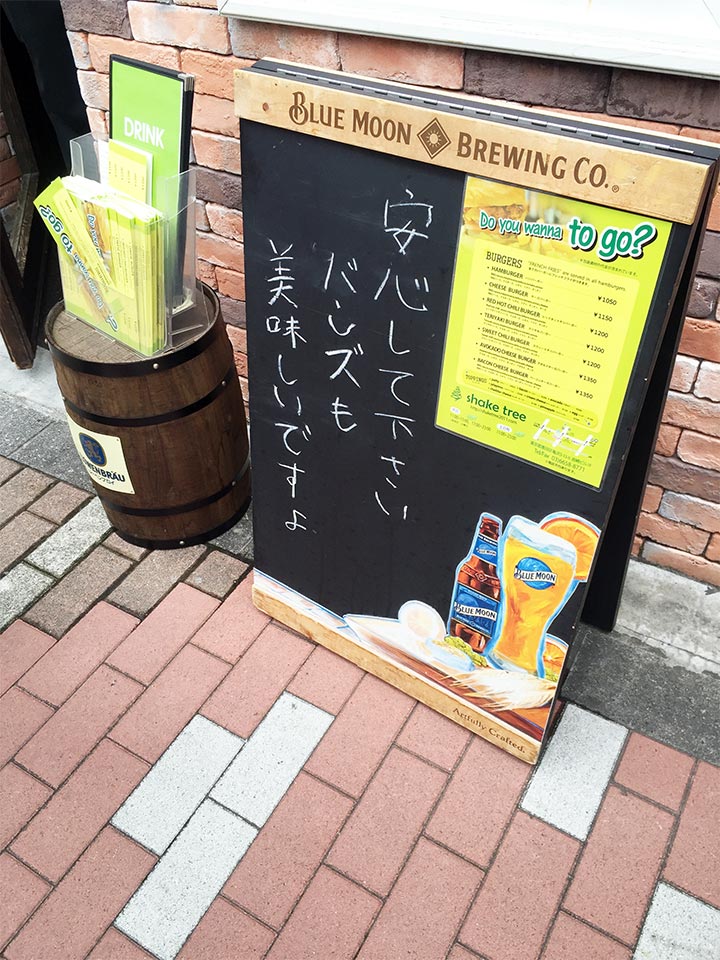 BLUE MOON BREWING CO.®
安心して下さい
バンズも
美味しいですよ
DRINK
to go?
Do you wanna to go?
BURGERS
"FRENCH FRIES" are served in all hamburgers.
HAMBURGER ¥1050
CHEESE BURGER ¥1150
RED HOT CHILI BURGER ¥1200
TERIYAKI BURGER ¥1200
SWEET CHILI BURGER ¥1200
AVOCADO CHEESE BURGER ¥1350
BACON CHEESE BURGER ¥1350
TOPPINGS
shake tree
BLUE MOON
BLUE MOON
Artfully Crafted.